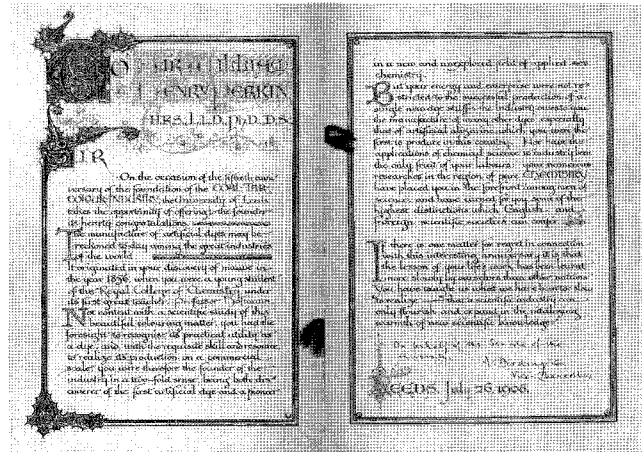 TO SIR William
HENRY PERKIN
F.R.S., LL.D., Ph.D., D.Sc.
SIR
On the occasion of the fiftieth anni-
versary of the foundation of the COAL-TAR
COLOUR INDUSTRY, the University of Leeds
takes the opportunity of offering the founder
its hearty congratulations.
The manufacture of artificial dyes may be
reckoned to-day among the great industries
of the world
It originated in your discovery of mauve in
the year 1856, when you were a young student
of the Royal College of Chemistry under
its first great teacher, Professor Hofmann
Not content with a scientific study of this
beautiful colouring matter, you had the
foresight to recognise its practical utility as
a dye, and with the requisite skill and resource
to realize its production on a commercial
scale you were therefore the founder of the
industry in a two-fold sense, being both dis-
coverer of the first artificial dye and a pioneer
in a new and unexplored field of applied
chemistry.
But your energy and enterprise were not re-
stricted to the successful production of a
single new dye-stuff; the industry owes to you
the manufacture of many other dyes, especially
that of artificial alizarine which you were the
first to produce in this country. Nor have the
applications of chemical science to industry been
the only fruit of your labours: your numerous
researches in the region of pure CHEMISTRY
have placed you in the forefront among men of
science and have earned for you some of the
highest distinctions which English and
Foreign scientific societies can confer
If there is one matter for regret in connection
with this interesting anniversary it is that
the lesson of your life's work has been learnt
less by our own than other nations
You have taught us what we have been slow
to realize that a scientific industry can
only flourish and expand in the vitalizing
warmth of new scientific knowledge
On behalf of the Senate of the
University
Vice-Chancellor
LEEDS, July 26, 1906.